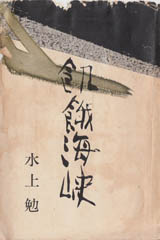 飢餓海峡
水上勉